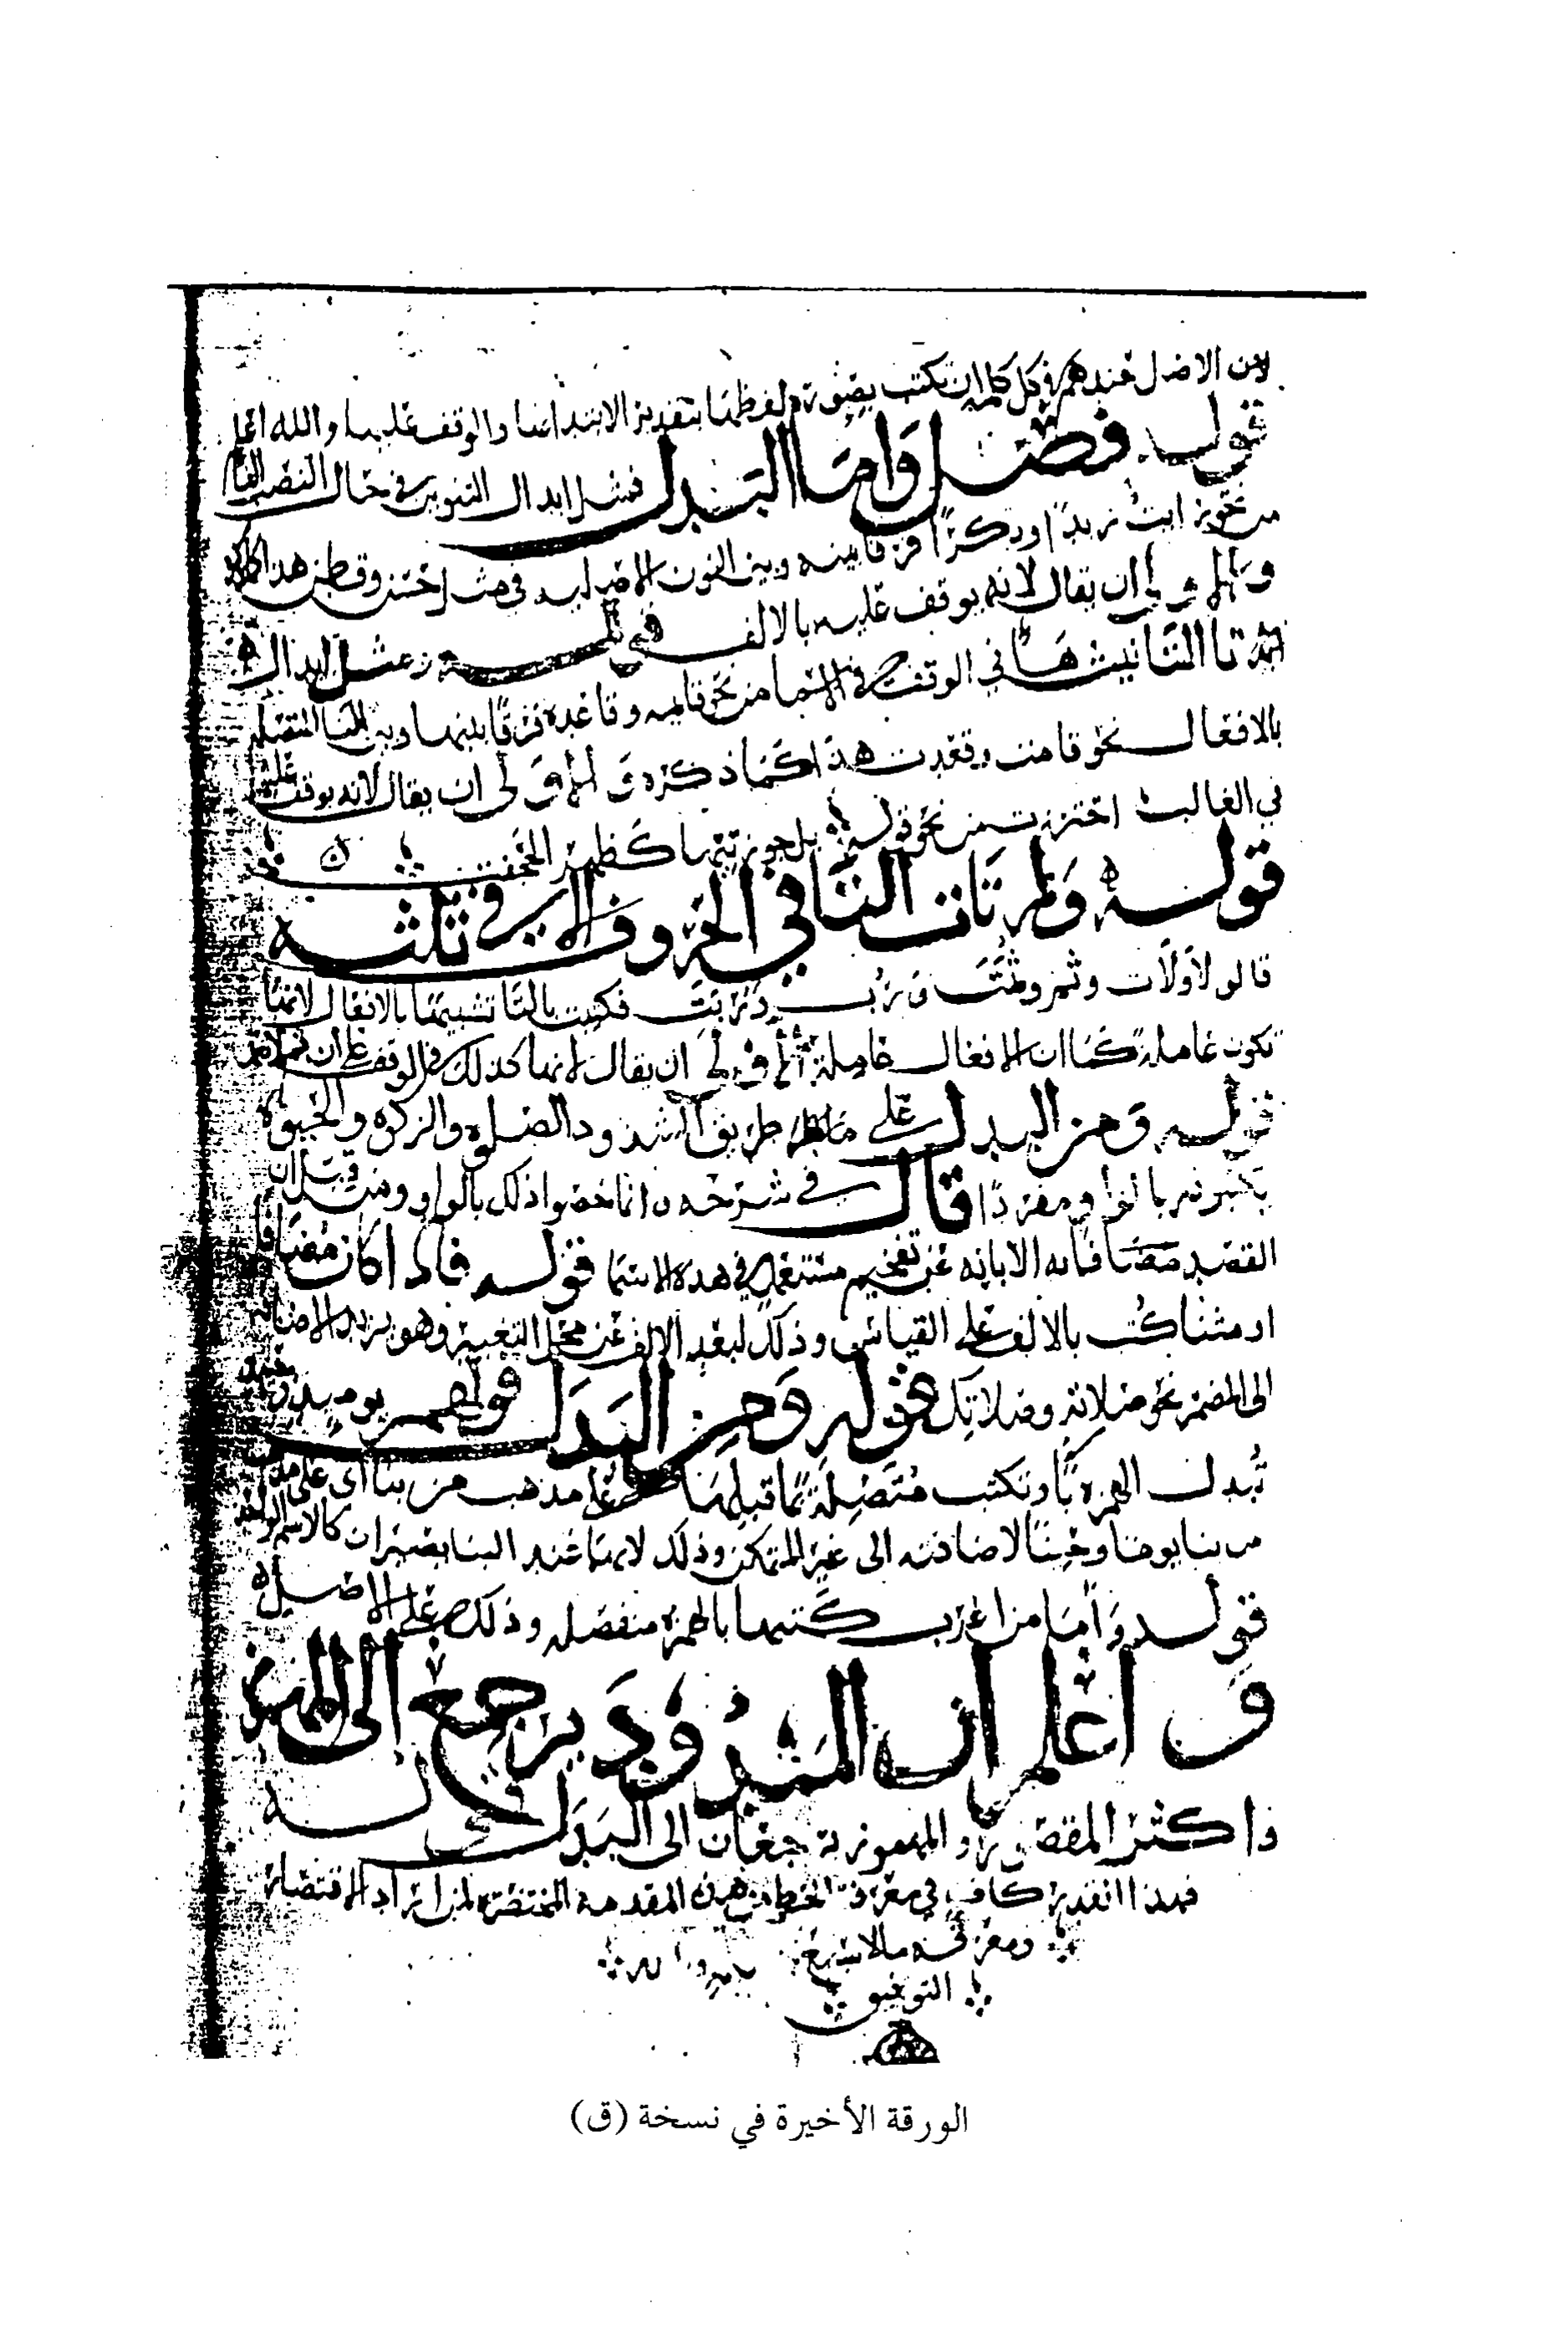 لان الاصل عندهم في كل كلمة ان تكتب بصورة لفظها بتقدير الابتدا بها والوقف عليها والله اعلم
قوله فصل واما البدل فمثل ابدال التنوين في حال النصب الفا
من نحو رايت زيدا وبكرا فرقا بينه وبين النون الاصلية في مثل احسن وقطن هذا كما ذكره
والاولى ان يقال لانه يوقف عليه بالالف قوله ومثل ابدال
تا التانيث ها في الوقف في الاسما من نحو قايمه وقاعده فرقا بينها وبين التا المتصله
بالافعال نحو قامت وقعدت هذا كما ذكره والاولى ان يقال لانه يوقف عليها
في الغالب احترزت من نحو قوله بل جوز تيها كظهر الحجفت
قوله ولم تات التا في الحروف الا في ثلثه
قالو لاولات وثم وثمت ورب وربت فكتبت بالتا تشبيها بالافعال لانها
تكون عاملة كما ان الافعال عاملة والاولى ان يقال لانها كذلك في الوقف
قوله ومن البدل على طريق الشذوذ الصلوه والزكوه والحيوه
يكتبونه بالواو مفردا قال في شرحه وانما خصوا ذلك بالواو ومن قبل ان
القصد الابانه عن تفخيم مستعمل في هذه الاسما قوله فاذا كان مضافا
او مثنا كتب بالالف على القياس وذلك لبعد الالف عن محل التغيير وهو يريد الاضافه
الى المضمر نحو صلاته وصلاتك قوله ومن البدل قولهم يوميذ وحينيذ
تبدل الهمزه يا وتكتب متصلة بما قبلها على مذهب من بنا اي على مذهب
من بنا يوما وحينا لاضافته الى غير المتمكن وذلك لانها عند البنا يصيران كالاسم الواحد
قوله واما من اعرب كتبها بالهمزه منفصله وذلك على الاصل
واعلم ان المبدود يرجع الى الهمز
واكثر المقصور والمهموز يرجعان الى البدل
فهذا القدر كاف في معرفة الخط من هذه المقدمة المختصره لمن اراد الاقتصار
ومعرفة ما لا يسع
التوفيق
الورقة الأخيرة في نسخة (ق)